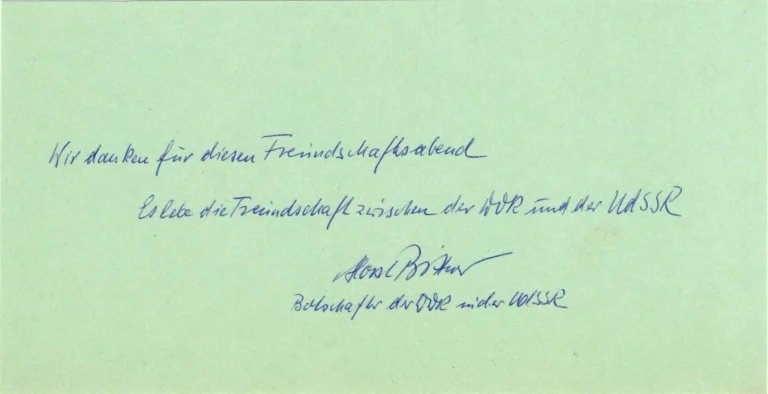 Wir danken für diesen Freundschaftsabend
Es lebe die Freundschaft zwischen der DDR und der UdSSR
Horst Bittner
Botschafter der DDR in der UdSSR